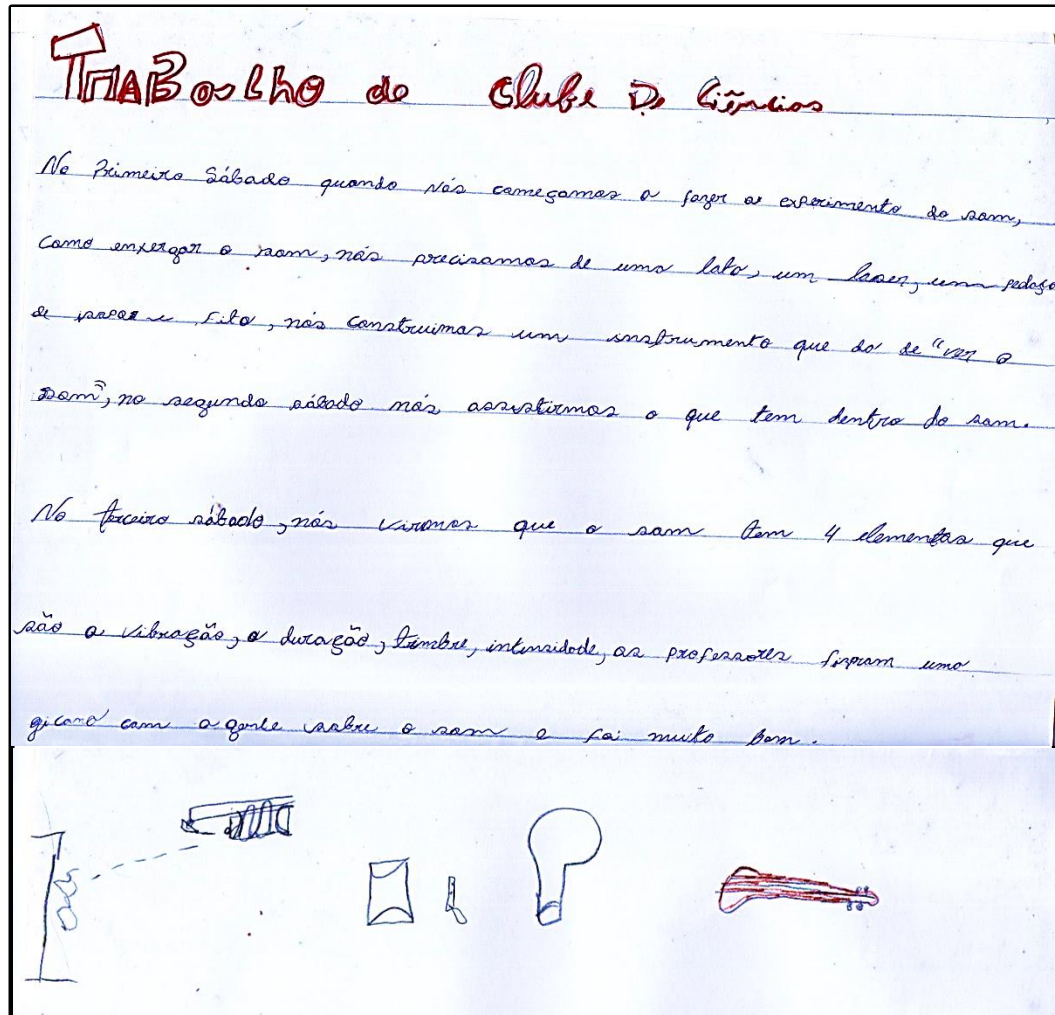 TRABalho do Clube De Ciências
No Primeiro Sábado quando nós começamos a fazer os experimento do som,
como enxergar o som, nós precisamos de uma lata, um laser, um pedaço
de papel e fita, nós construimos um instrumento que da de "ver o
som", no segundo sábado nós assistirmos o que tem dentro do som.
No terceiro sábado, nós virmos que o som tem 4 elementos que
são a vibração, a duração, timbre, intensidade, os professores fizeram uma
gicana com a gente sobre o som e foi muito bom.